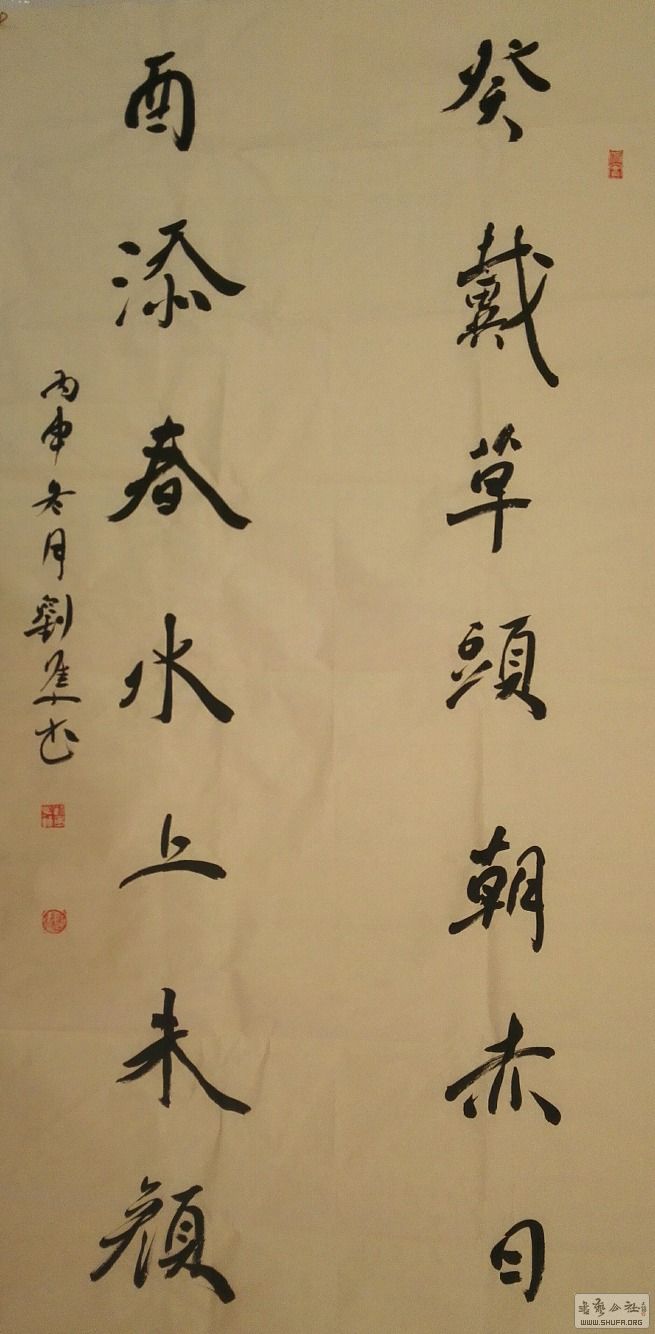 癸戴草頭朝赤日
酉添春水上朱顏
丙申冬月劉生書
書藝公社
WWW.SHUFA.ORG